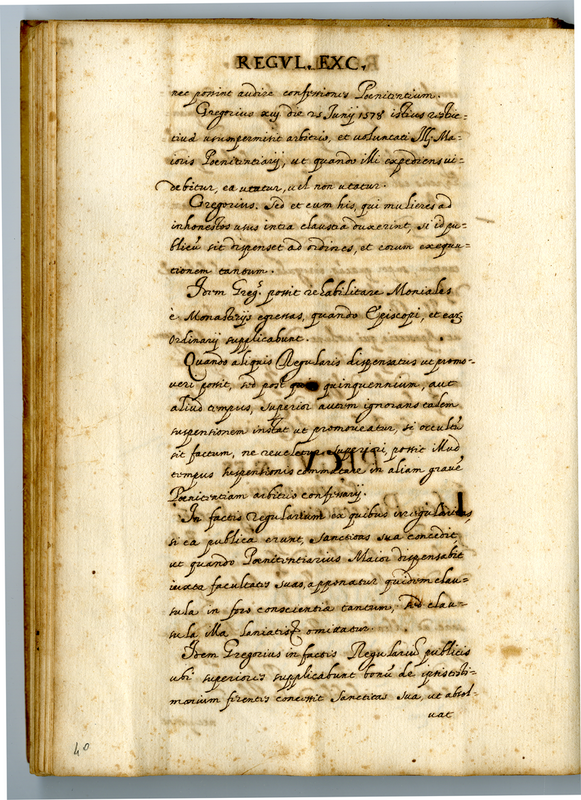 REGVL. EXC.
nec possint audire confessiones Poenitentium.
Gregorius xiij die 25 Junij 1578 istius restric-
tiuã usum permisit arbitrio, et voluntati Illj Ma-
ioris Poenitentiarij, ut quando illi expediens ui-
debitur, ea utatur, uel non utatur.
Gregorius. Sed et cum his, qui mulieres ad
inhonestos usus intra claustra duxerint, si id pu-
blicũ sit dispenset ad ordines, et eorum exequu-
tionem tantum.
Idem Greg.s possit rehabilitare Moniales
è Monasterijs egressas, quando Episcopi, et earʒ
Ordinarij supplicabunt.
Quando aliquis Regularis dispensatus ut promo-
ueri possit, sed post quinquennium, aut
aliud tempus, superior autem ignorans talem
suspensionem instat ut promoueatur, si occultũ
sit factum, ne reueletur superiori, possit illud
tempus suspensionis commutare in aliam grauẽ
Poenitentiam arbitrio confessarij.
In factis regularium ex quibus irregularitas,
si ea publica erunt, Sanctitas sua concedit,
ut quando Poenitentiarius Maior dispensabit
iuxta facultates suas, apponatur quidem clau-
sula in foro conscientiæ tantum, sed clau-
sula illa omittatur.
Idem Gregorius in factis Regulariũ publicis
ubi superiores supplicabunt bonũ de ipsis testi-
monium ferentes concessit Sanctitas sua, ut absol-
uat
40